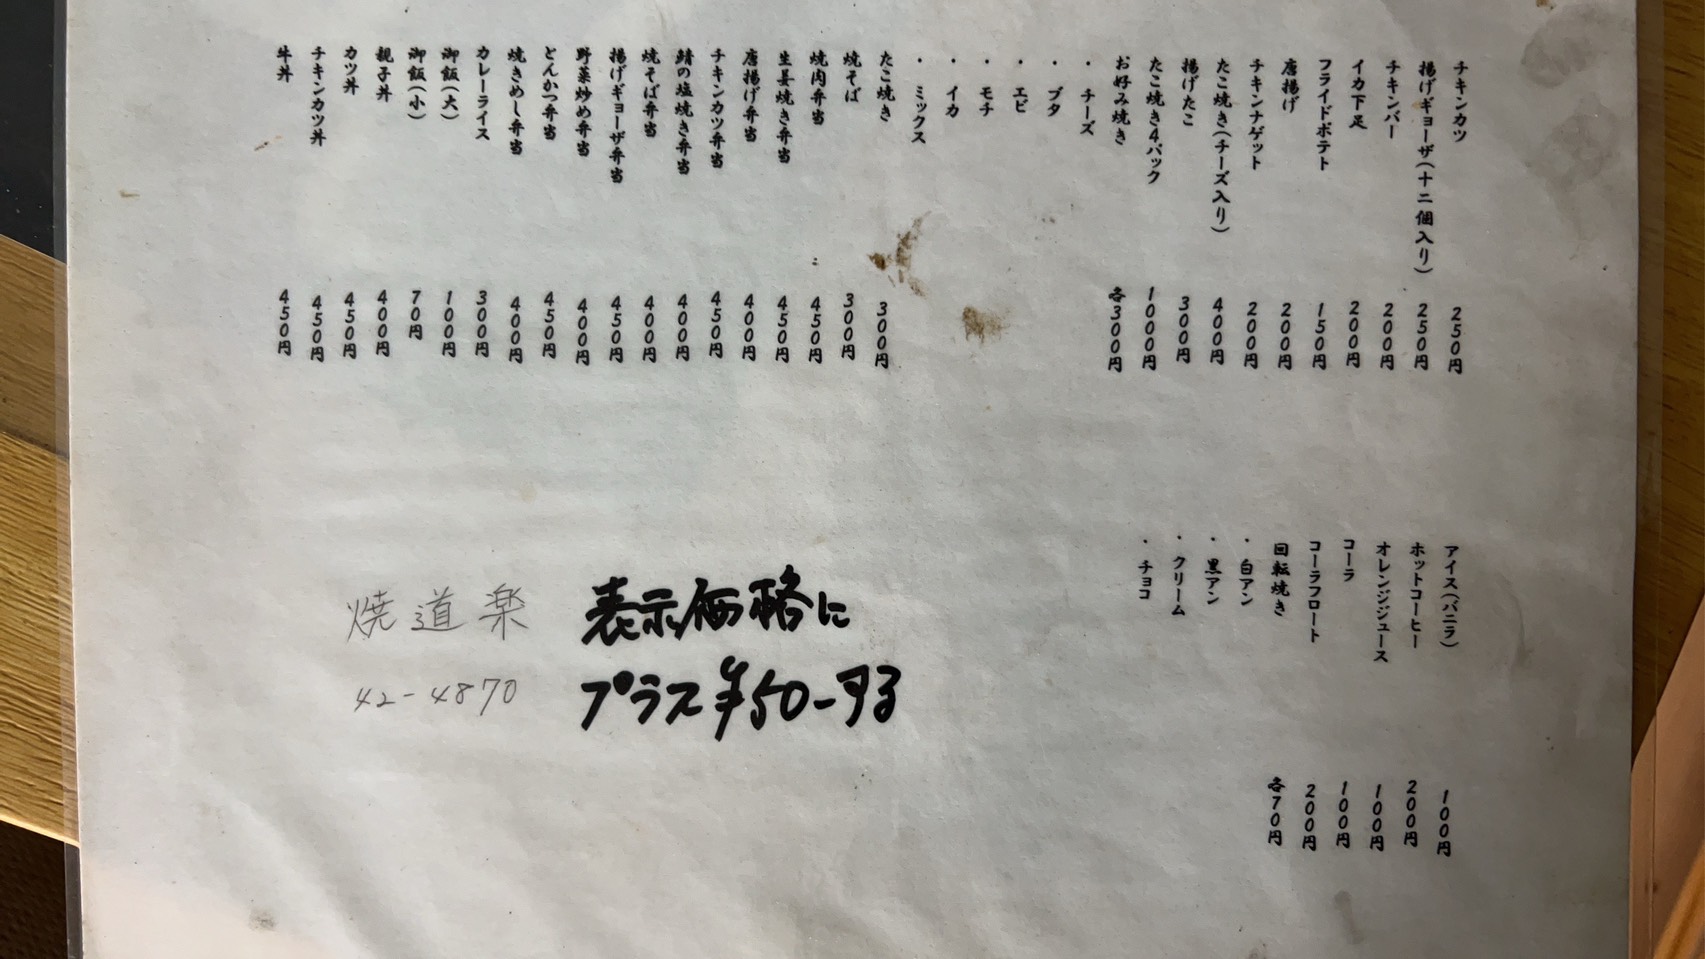 チキンカツ 250円
揚げギョーザ(十二個入り) 250円
チキンバー 200円
イカ下足 200円
フライドポテト 150円
唐揚げ 200円
チキンナゲット 200円
たこ焼き(チーズ入り) 400円
揚げたこ 300円
たこ焼き4パック 1000円
お好み焼き 各300円
・チーズ
・ブタ
・エビ
・モチ
・イカ
・ミックス
たこ焼き 300円
焼そば 300円
焼肉弁当 450円
生姜焼き弁当 450円
唐揚げ弁当 400円
チキンカツ弁当 450円
鯖の塩焼き弁当 400円
焼そば弁当 400円
揚げギョーザ弁当 450円
野菜炒め弁当 400円
とんかつ弁当 450円
焼きめし弁当 400円
カレーライス 300円
御飯(大) 100円
御飯(小) 70円
親子丼 400円
カツ丼 450円
チキンカツ丼 450円
牛丼 450円
アイス(バニラ) 100円
ホットコーヒー 200円
オレンジジュース 100円
コーラ 100円
コーラフロート 200円
回転焼き 各70円
・白アン
・黒アン
・クリーム
・チョコ
表示価格に
プラス¥50-する
焼道楽
42-4870